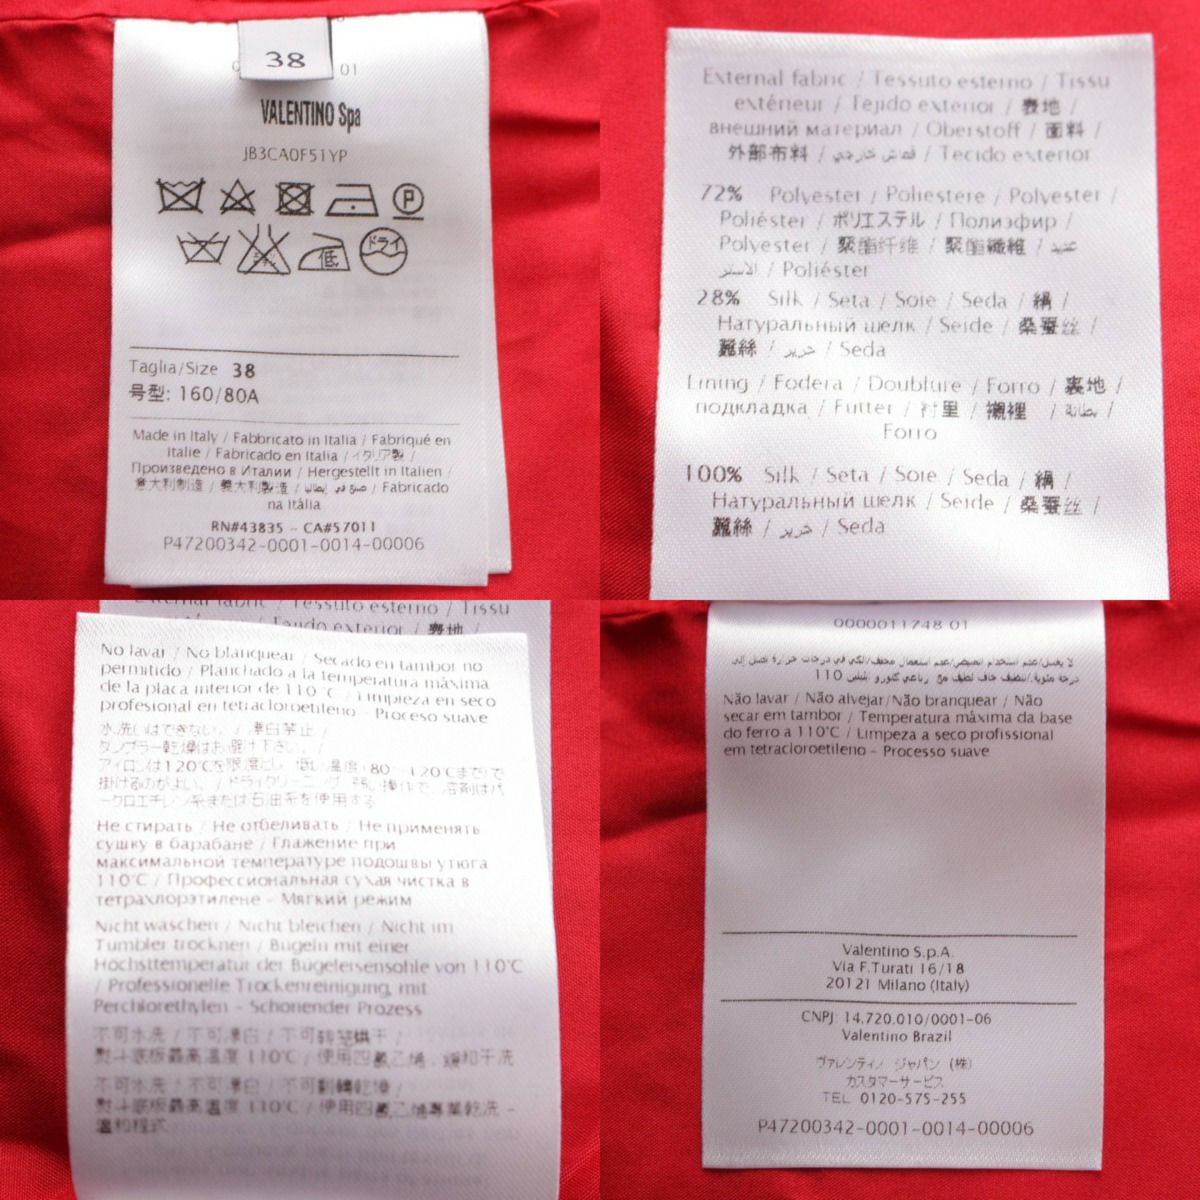 38
01
VALENTINO Spa
JB3CA0F51YP
P
低
ドライ
Taglia/Size 38
号型: 160/80A
Made in Italy / Fabbricato in Italia / Fabriqué en
Italie / Fabricado en Italia / イタリア製 /
Произведено в Италии / Hergestellt in Italien /
意大利制造 / 義大利製造 / صنع في إيطاليا / Fabricado
na Itália
RN#43835 - CA#57011
P47200342-0001-0014-00006
External fabric / Tessuto esterno / Tissu
extérieur / Tejido exterior / 表地 /
внешний материал / Oberstoff / 面料 /
外部布料 / قماش خارجي / Tecido exterior
72% Polyester / Poliestere / Polyester /
Poliéster / ポリエステル / Полиэфир /
Polyester / 聚酯纤维 / 聚酯纖維 / عديد
الاستر / Poliéster
28% Silk / Seta / Soie / Seda / 絹 /
Натуральный шелк / Seide / 桑蚕丝 /
蠶絲 / حرير / Seda
Lining / Fodera / Doublure / Forro / 裏地 /
подкладка / Futter / 衬里 / 襯裡 / بطانة /
Forro
100% Silk / Seta / Soie / Seda / 絹 /
Натуральный шелк / Seide / 桑蚕丝 /
蠶絲 / حرير / Seda
External fabric / Tessuto esterno / Tissu
/ Tejido exterior / 表地 /
No lavar / No blanquear / Secado en tambor no
permitido / Planchado a la temperatura máxima
de la placa interior de 110°C / Limpieza en seco
profesional en tetracloroetileno - Proceso suave
水洗いはできない。 / 漂白禁止 /
タンブラー乾燥はお避け下さい。 /
アイロンは120℃を限度とし、低い温度(80~120℃まで)で
掛けるのがよい。 / ドライクリーニング、弱い操作で、溶剤はパ
ークロエチレン系または石油系を使用する
Не стирать / Не отбеливать / Не применять
сушку в барабане / Глажение при
максимальной температуре подошвы утюга
110°C / Профессиональная сухая чистка в
тетрахлорэтилене - Мягкий режим
Nicht waschen / Nicht bleichen / Nicht im
Tumbler trocknen / Bügeln mit einer
Höchsttemperatur der Bügeleisensohle von 110°C
/ Professionelle Trockenreinigung, mit
Perchlorethylen - Schonender Prozess
不可水洗 / 不可漂白 / 不可转笼烘干 /
熨斗底板最高温度 110℃ / 使用四氯乙烯，缓和干洗
不可水洗 / 不可漂白 / 不可翻轉乾燥 /
熨斗底板最高溫度 110℃ / 使用四氯乙烯專業乾洗 -
溫和程式
0000011748 01
لا يغسل/عدم استخدام المبيض/عدم استعمال مجفف/الكي في درجات حرارة تصل إلى
110
Não lavar / Não alvejar/Não branquear / Não
secar em tambor / Temperatura máxima da base
do ferro a 110°C / Limpeza a seco profissional
em tetracloroetileno - Processo suave
Valentino S.p.A.
Via F.Turati 16/18
20121 Milano (Italy)
CNPJ: 14.720.010/0001-06
Valentino Brazil
ヴァレンティノ ジャパン (株)
カスタマーサービス
TEL 0120-575-255
P47200342-0001-0014-00006